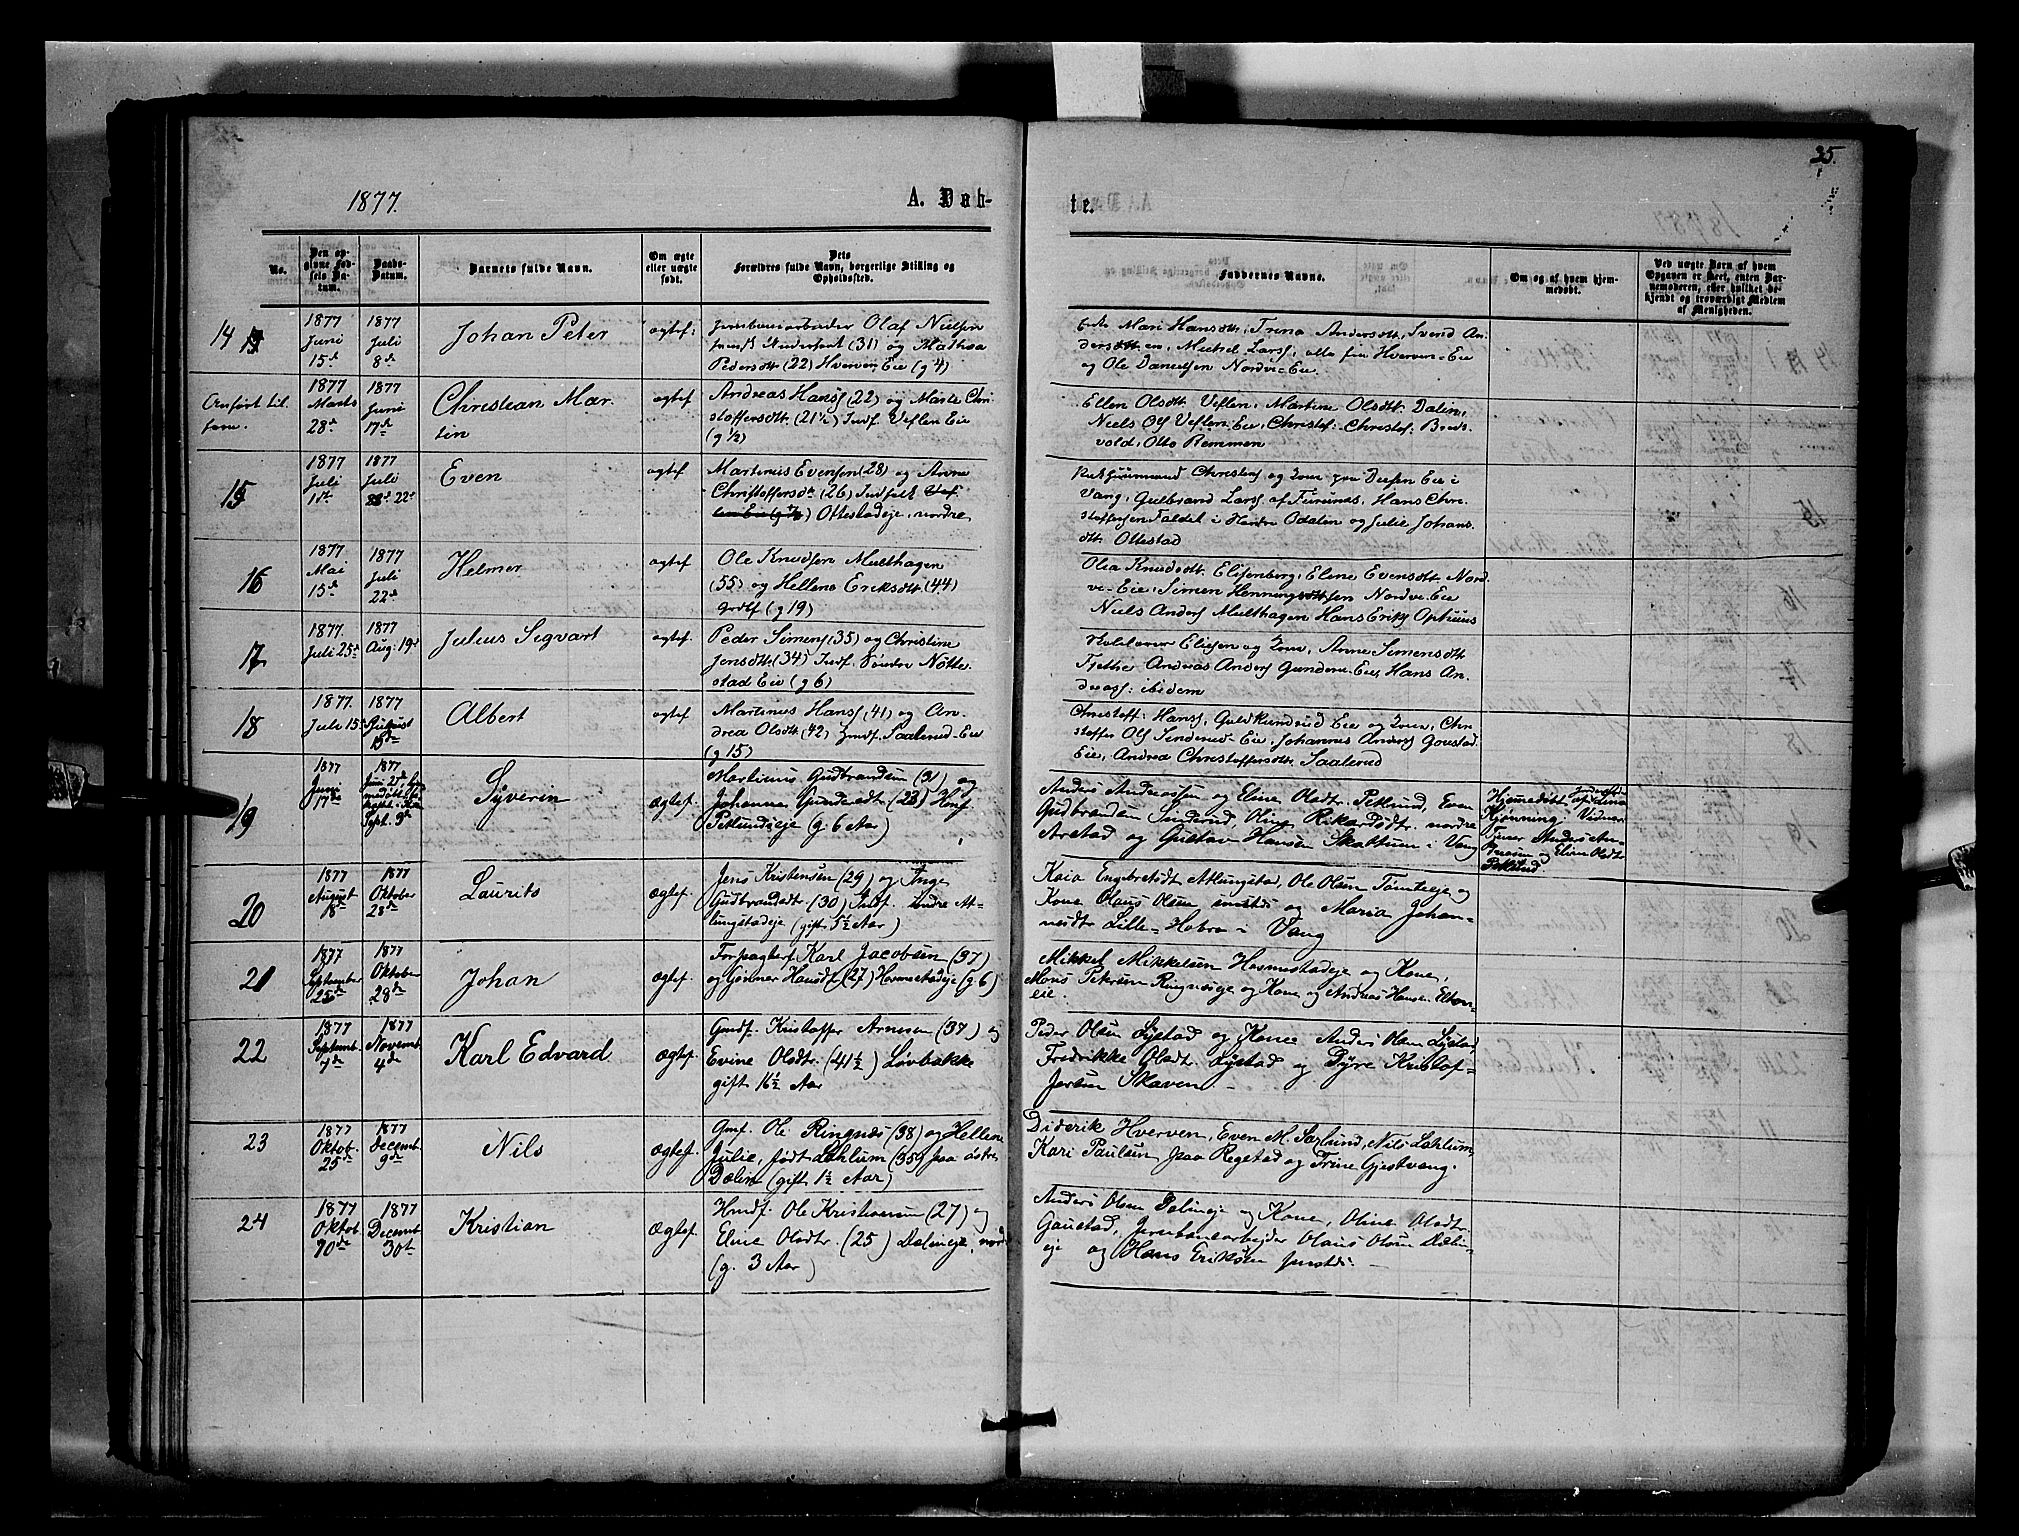 35.
1877.
A. Døb-
te.
No.
Den op-
givne Fød-
sels Da-
tum.
Daabs-
Datum.
Barnets fulde Navn.
Om ægte
eller uægte
født.
Dets
Forældres fulde Navn, borgerlige Stilling og
Opholdssted.
Faddernes Navne.
Om og af hvem hjem-
medøbt.
Ved uægte Barn af hvem
Opgaven er skeet, enten Bar-
nemoderen, eller hvilket be-
kjendt og troværdigt Medlem
af Menigheden.
14
1877
Juni
15de
1877
Juli
8de
Johan Peter
ægtef:
Jernbanearbeider Olaf Nielsen
svensk Undersaat (31) og Mathea
Pedersdtr (22) Hverven Eie (g 4)
Enke Mari Hansdtr, Trina Andersdtr, Svend An-
dersdtr en, Mickel Larss, alle fra Hverven-Eie
og Ole Danielsen Nordvi-Eie.
Anført til-
forn.
1877
Marts
28de
1877
Juni
17de
Christian Mar-
tin
ægtef
Andreas Hanss (22) og Marte Chri-
stoffersdtr. (21½) Indf Veflen Eie
(g ½)
Ellen Olsdtr. Veflen, Martine Olsdtr. Dalin,
Niels Ols Veflen-Eie, Christof: Christof: Breds-
vold, Otto Remmen
15
1877
Juli
1ste
1877
Juli
22de
Even
ægtef
Martinus Evensen (28) og Anne
Christoffersdtr (26) Indf
len Eie (g ½) Ottestadeje, nordre
Christens og Kone paa Deisen Eie i
Vang, Gulbrand Larss af Furunæs, Hans Chri-
stoffersen Faldet i Nordre Odalen og Julie Johans
dtr. Ottestad
16
1877
Mai
15de
1877
Juli
22de
Helmer
ægtef
Ole Knudsen Multhagen
(55) og Hellene Eriksdtr. (44)
Grdbf (g 19)
Olea Knudsdtr Elisenberg, Elene Evensdtr. Nord-
vi-Eie, Simen Henningsen Nordvi-Eie
Niels Anders Multhagen Hans Eriks Ophuus
17
1877.
Juli 25de
1877
Aug: 19de
Julius Sigvart
ægtef
Peder Simens (35) og Christine
Jensdtr (34) Indf. Søndre Nötte-
stad Eie (g 6)
Eliesen og Kone, Anne Simensdtr
Tjette, Andreas Anders Gunderu-Eie, Hans An-
dreass: ibidem
18
1877.
Juli 15de
1877
August
15de
Albert
ægtef
Martinus Hanss (41) og An-
drea Olsdtr. (42) Indf. Saalerud-Eie
(g 15)
Christoff: Hanss, Guldkunrud Eie og Kone, Chri-
stoffer Ols Sinderud-Eie, Johannes Anders Goustad
Eie, Andrea Christoffersdtr. Saalerud
19
1877
Juni
17de
1877
Sept. 9de
Syverin
ægtef
Martinus Gudbrandsen (31) og
Johanne Gundersdt (23) Hmf
Peklundeje (g 6 Aar)
Anders Andreassen og Eline Olsdtr. Peklund, Even
Gudbrandsen Sinderud, Oline Rikardsdtr. nordre
Arstad og Gustav Hansen Skattum i Vang
Hjemmedøbt
Kjønning. Vidner
Anders An-
dreasen og Eline Olsdtr
Peklund.
20
1877
August
18de
1877
Oktober
28de
Laurits
ægtef.
Jens Kristensen (29) og Inge
Gudbrandsdt (30) Indf. indre At-
lungstadeje (gift 5½ Aar)
Kaia Engebretsdt Atlungstad, Ole Olsen Tomteeje og
Kone Olaus Olsen og Maria Johan-
nesdtr Lille-Habro i Vang
21
1877
September
25de
1877
Oktober
28de
Johan
ægtef.
Forpagter Karl Jacobsen (37)
og Gunner Hansdt (27) Hosmestadeje (g. 6)
Mikkel Mikkelsen Hosmestadeje og Kone,
Mons Petersen Ringnæseje og Kone og Andreas Hansen Elton-
eie.
22
1877
Septemb.
7de
1877
Novemb.
4de
Karl Edvard
ægtef.
Gmdf. Kristoffer Arnesen (37) og
Evine Olsdtr. (41½) Løvbakke
gift 16½ Aar
Peder Olsen Lystad og Kone Anders Olsen Lystad,
Fredrikke Olsdtr. Lystad og Dyre Kristof-
fersen Skaven
23
1877
Oktob.
25de
1877
Decemb.
9de
Nils
ægtef.
Gmf. Ole Ringnæs (38) og Hellene
Julie, født Lahlum (35) paa østre
Dælin (gift 1½ Aar)
Diderik Hverven, Even M. Sælund, Nils Lahlum,
Kari Paulsen paa Rogstad og Trine Gjestvang.
24
1877
Oktob.
1877
Decemb.
30te
Kristian
ægtef.
Hmdf. Ole Kristiansen (27) og
Eline Olsdtr. (25) Dælineje, nord
(g. 3 Aar)
Anders Olsen Dælineje og Kone, Oline Olsdtr.
Gaustad, Jernbanearbejder Olaus Olsen Dælin-
eje og Hans Eriksen